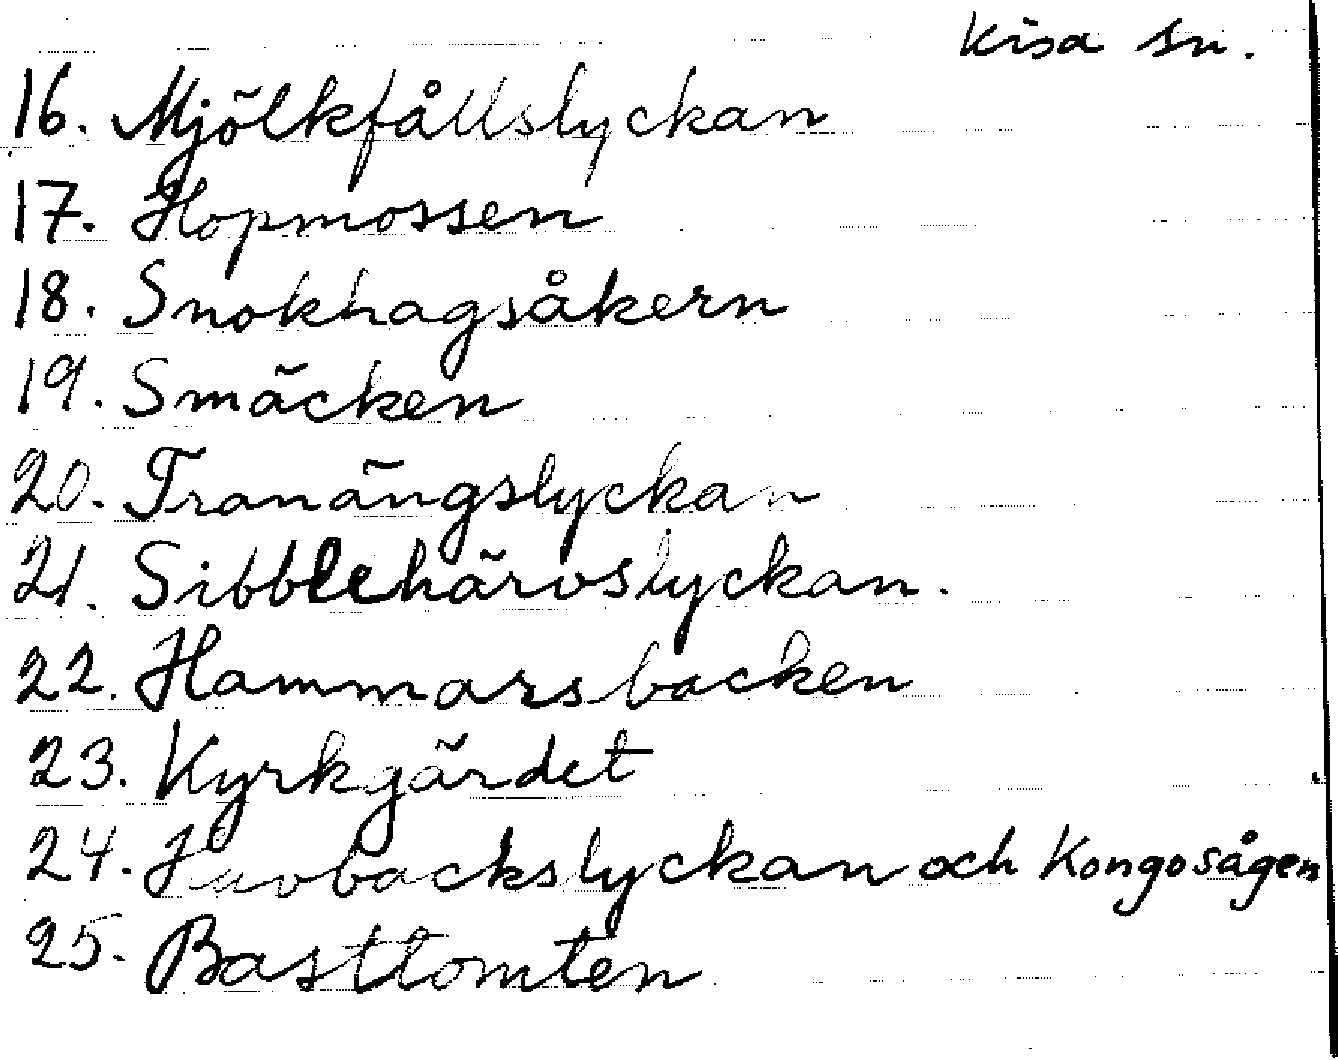 Kisa sn.
16. Mjölkfållslyckan
17. Hopmossen
18. Snokhagsåkern
19. Smäcken
20. Tranängslyckan
21. Sibblehärvslyckan.
22. Hammarsbacken
23. Kyrkgärdet
24. och Kongosågen
25. Basttomten